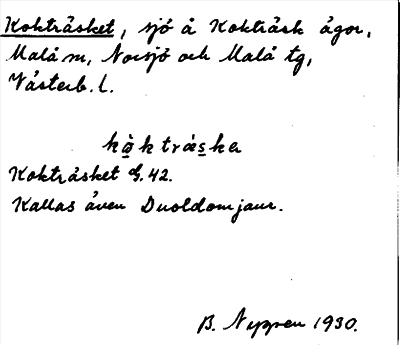 Kokträsket, sjö å Kokträsk ägor,
Malå m, Norsjö och Malå tg,
Västerb. l.
kåktrèske
Kokträsket G. 42.
Kallas även Duoldomjaur.
B. Nygren 1930.